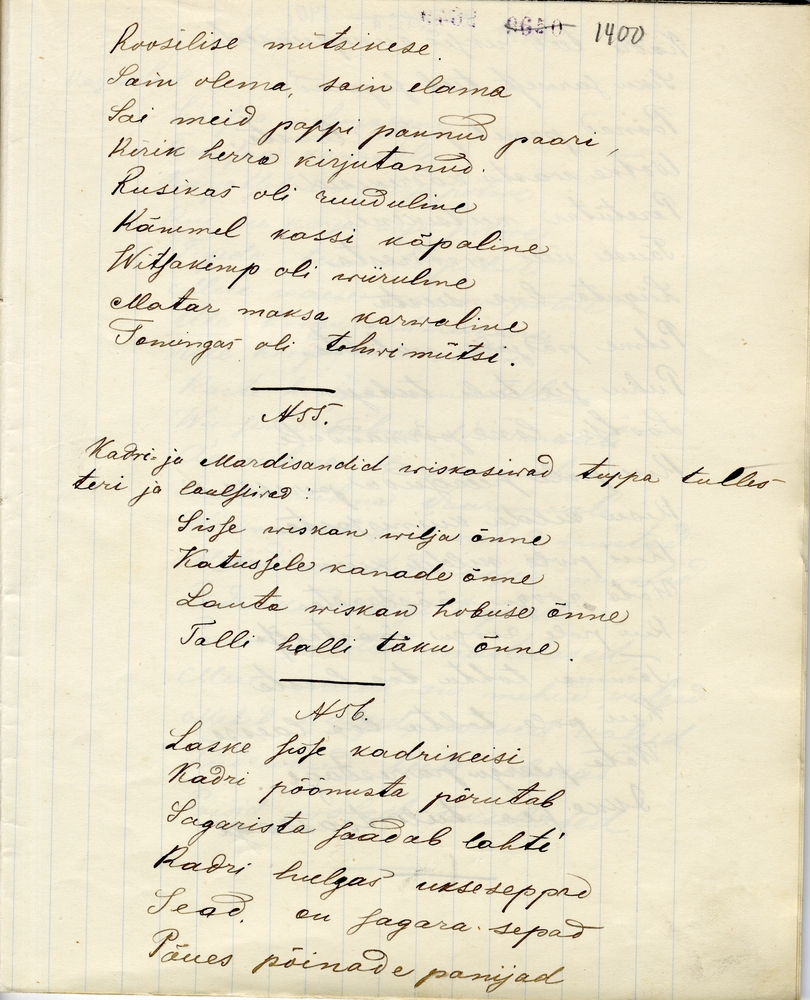 1400
Roosilise mütsikese.
Sain olema, sain elama
Sai meid pappi pannud paari,
Kirik herra kirjutanud.
Rusikas oli ruuduline
Kämmel kassi käpaline
Witsakimp oli wiiruline
Matar maksa karwaline
Toningas oli tohwimütsi.
N55.
Kadri- ja Mardisandid wiskasiwad tuppa tulles
teri ja laulsiwad:
Sisse wiskan wilja õnne
Katussele kanade õnne
Lauta wiskan hobuse õnne
Talli halli täku õnne.
N56.
Laske sisse kadrikeisi
Kadri põõnusta põrutab
Sagarista saadab lahti
Kadri hulgas ukseseppad
Sead. on sagara-sepad
Põues põinade panijad